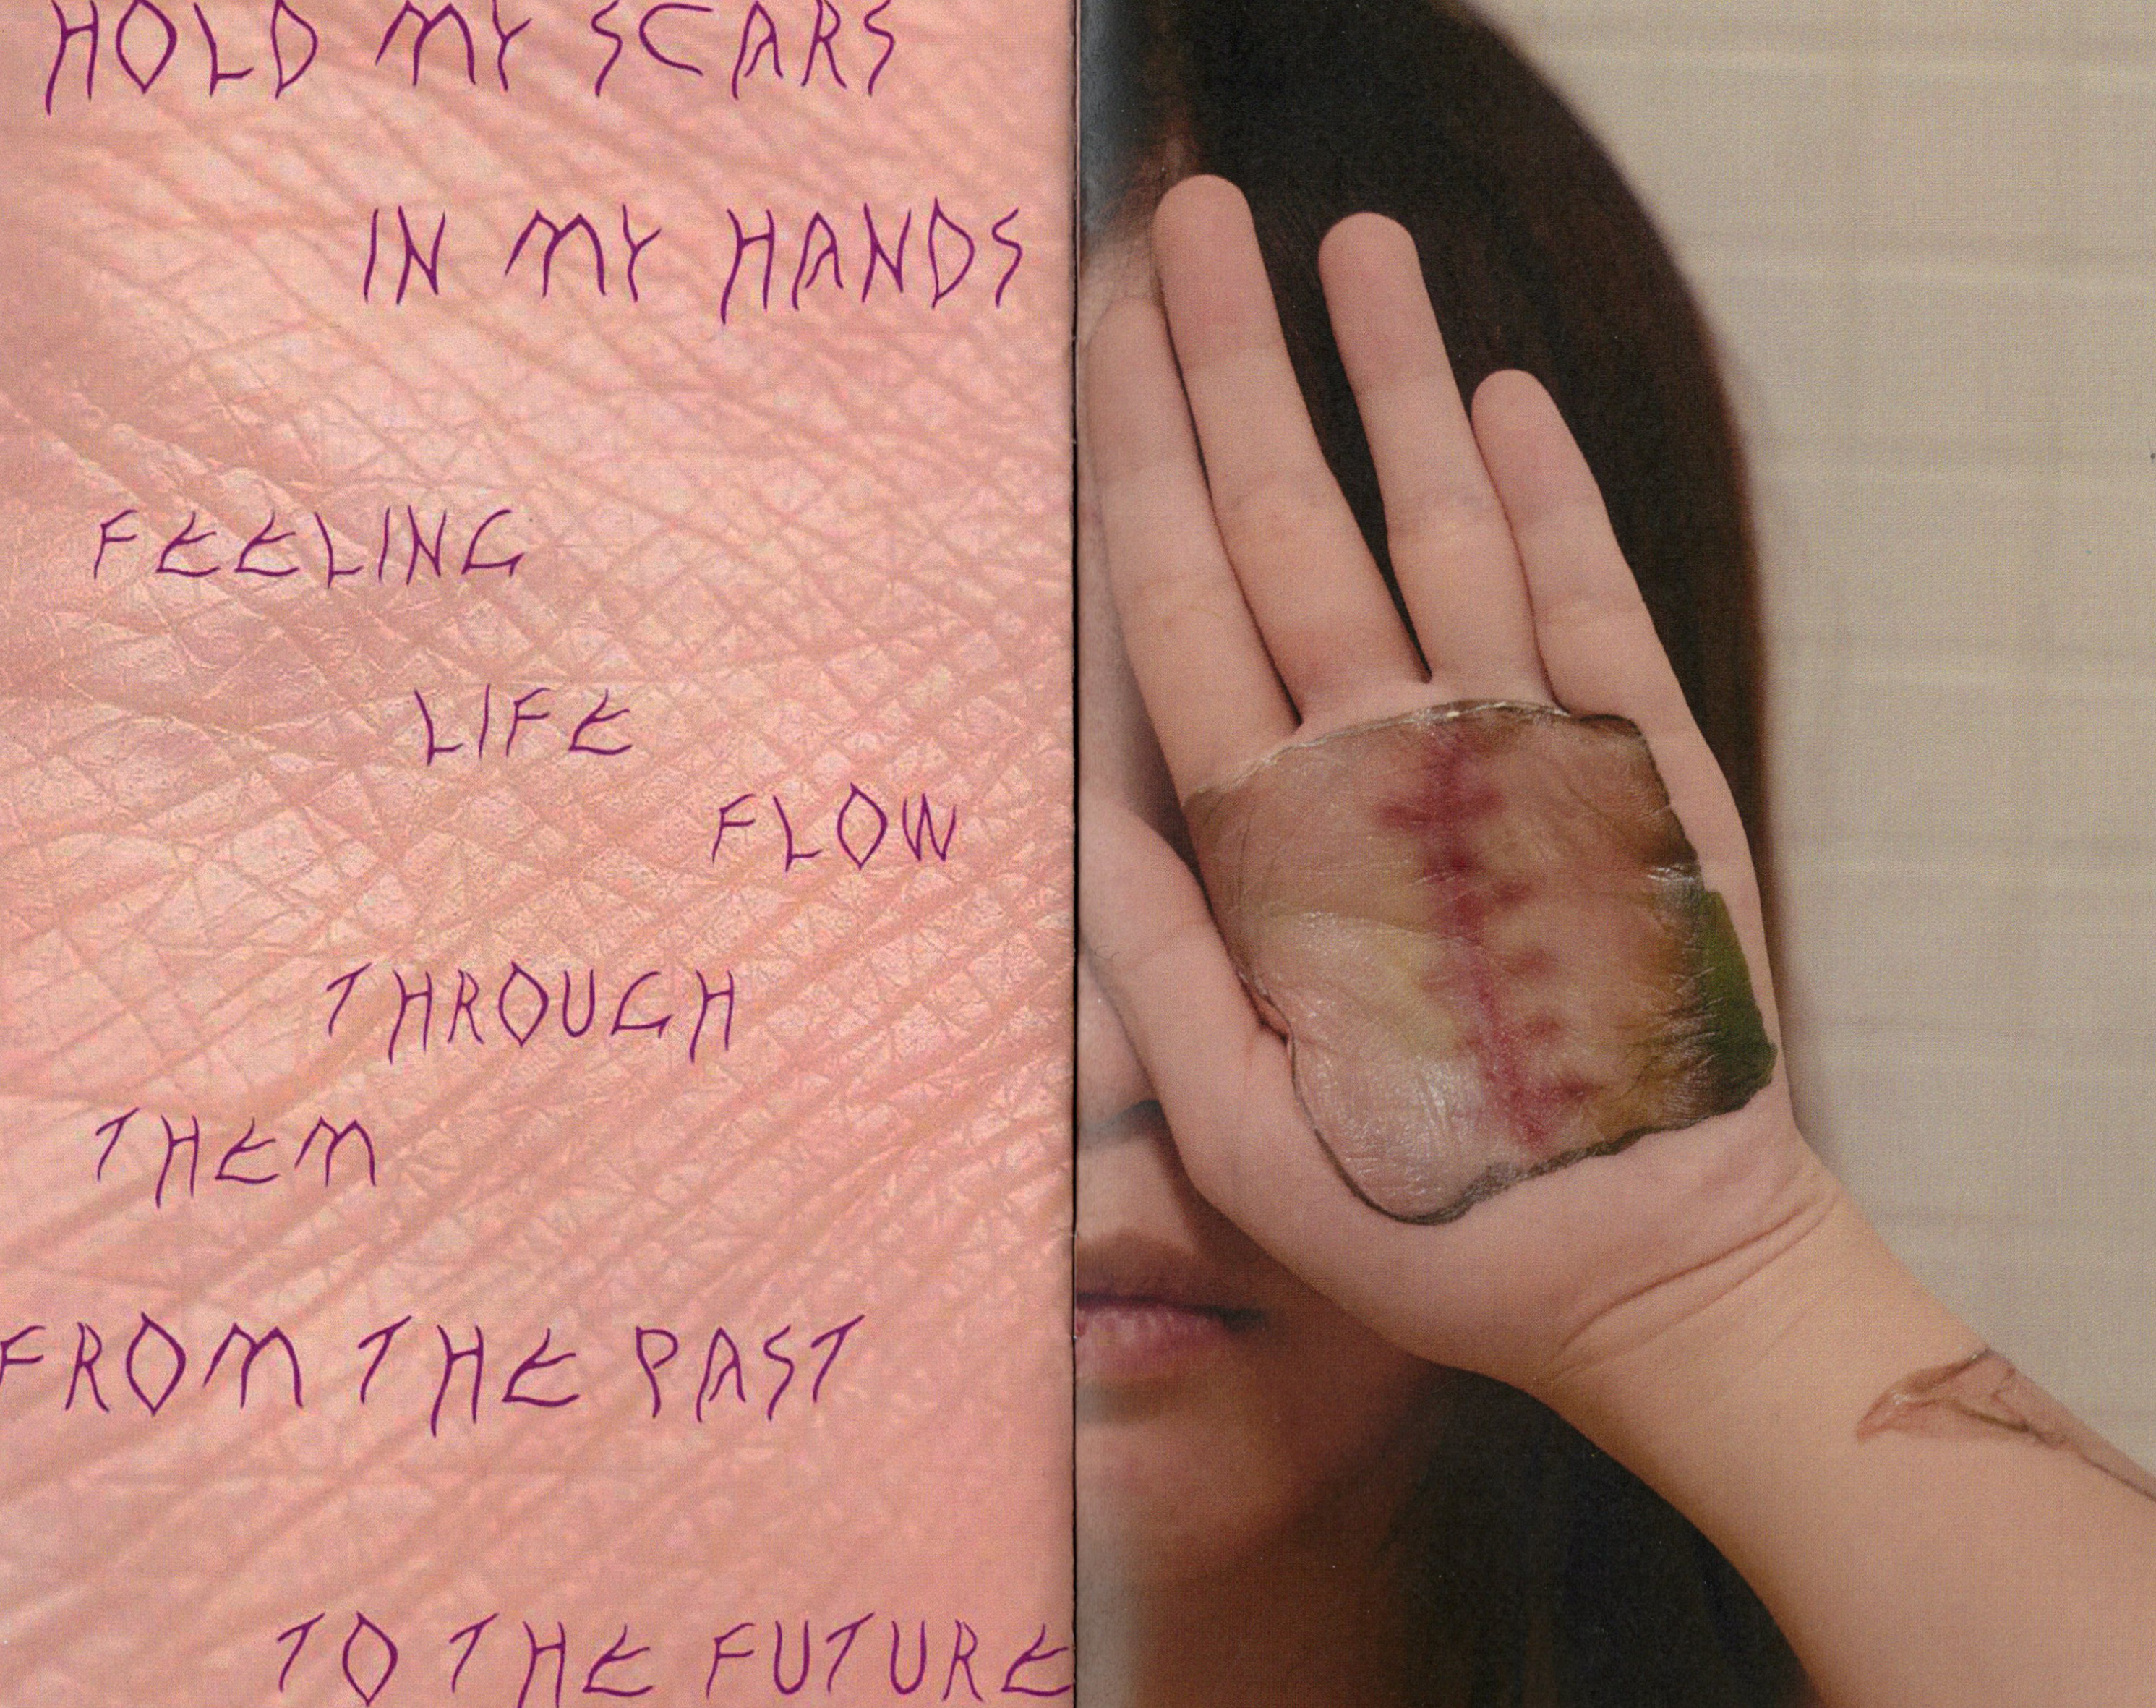 HOLD MY SCARS
IN MY HANDS
FEELING
LIFE
FLOW
THROUGH
THEM
FROM THE PAST
TO THE FUTURE